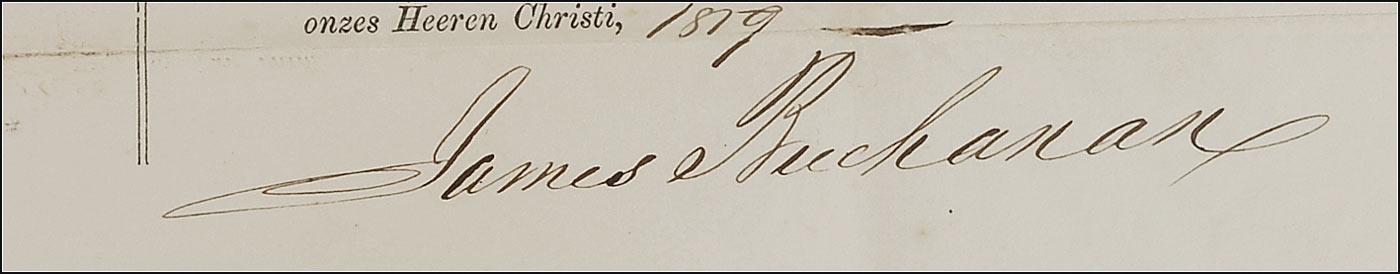 onzes Heeren Christi,
James Buchanan